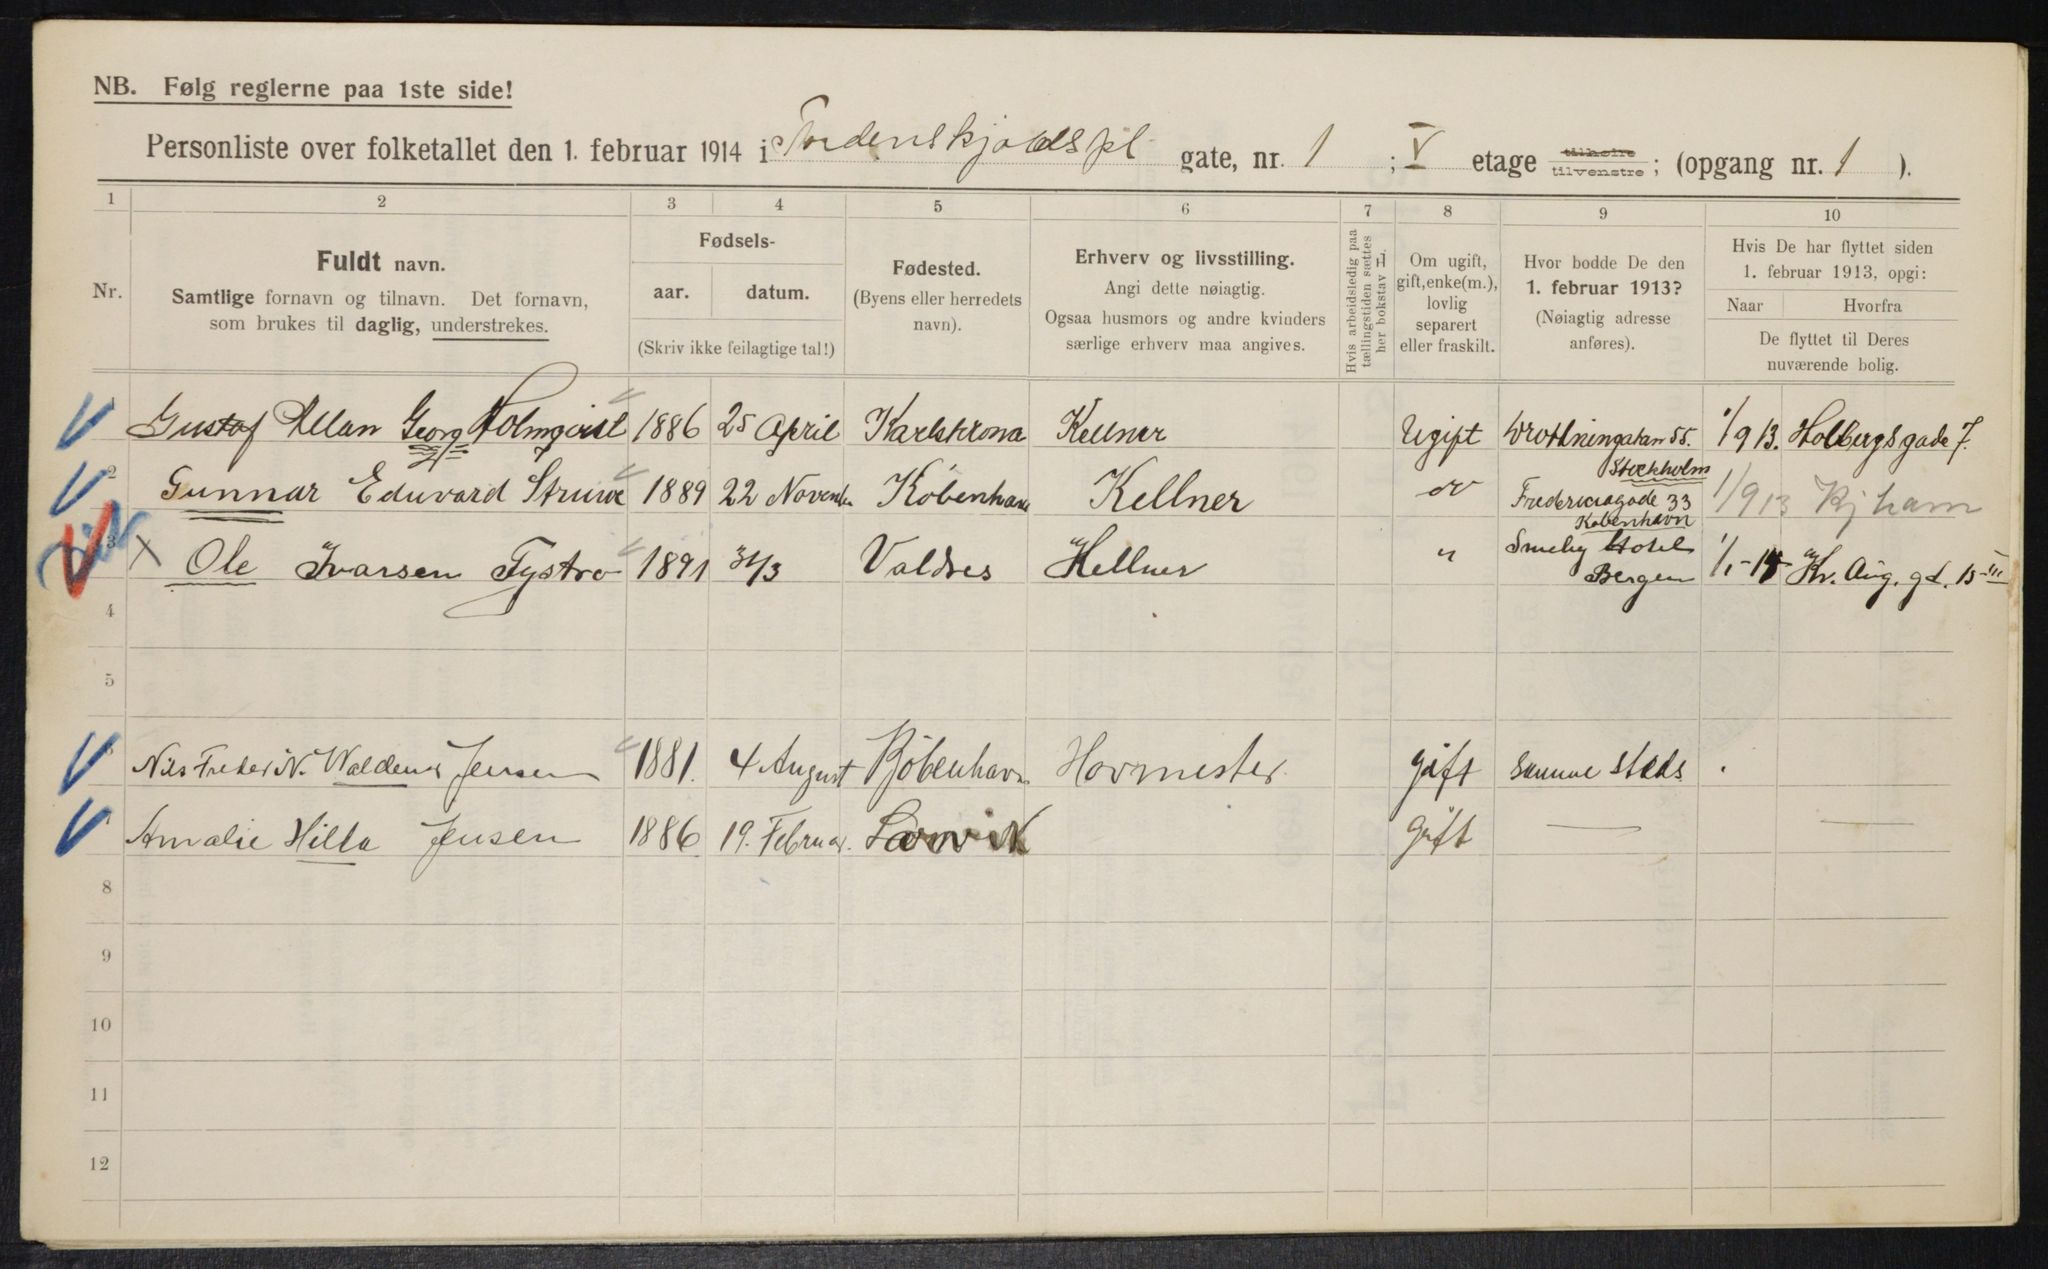 NB. Følg reglerne paa 1ste side!
Personliste over folketallet den 1. februar 1914 i Tordenskjoldspl. gate, nr. 1 ; V etage tilhøire tilvenstre ; (opgang nr. 1 ).
1 2 3 4 5 6 7 8 9 10
Nr.
Fuldt navn.
Samtlige fornavn og tilnavn. Det fornavn,
som brukes til daglig, understrekes.
Fødsels-
aar. datum.
(Skriv ikke feilagtige tal!)
Fødested.
(Byens eller herredets
navn).
Erhverv og livsstilling.
Angi dette nøiagtig.
Ogsaa husmors og andre kvinders
særlige erhverv maa angives.
Hvis arbeidsledig paa
tællingstiden sættes
her bokstav L.
Om ugift,
gift, enke(m.),
lovlig
separert
eller fraskilt.
Hvor bodde De den
1. februar 1913?
(Nøiagtig adresse
anføres).
Hvis De har flyttet siden
1. februar 1913, opgi:
Naar Hvorfra
De flyttet til Deres
nuværende bolig.
1 Gustaf Allan Georg Holmqvist 1886 25 April Karlskrona Kellner Ugift Drottningatan 55. Stockholm 1/9 13. Holbergsgade 7.
2 Gunnar Eduvard Struwe 1889 22 November København Kellner do Fredericiagade 33 København 1/9 13 Kjhavn
3 X Ole Ivarsen Fystro 1891 31/3 Valdres Kellner " Smeby Hotel Bergen 1/1-14 Kr. Aug. gt. 15 III
4
5
6 Nils Freder N. Waldemar Jensen 1881. 4 August København Hovmester gift samme steds
7 Amalie Hilda Jensen 1886 19. Februar. Larvik gift
8
9
10
11
12